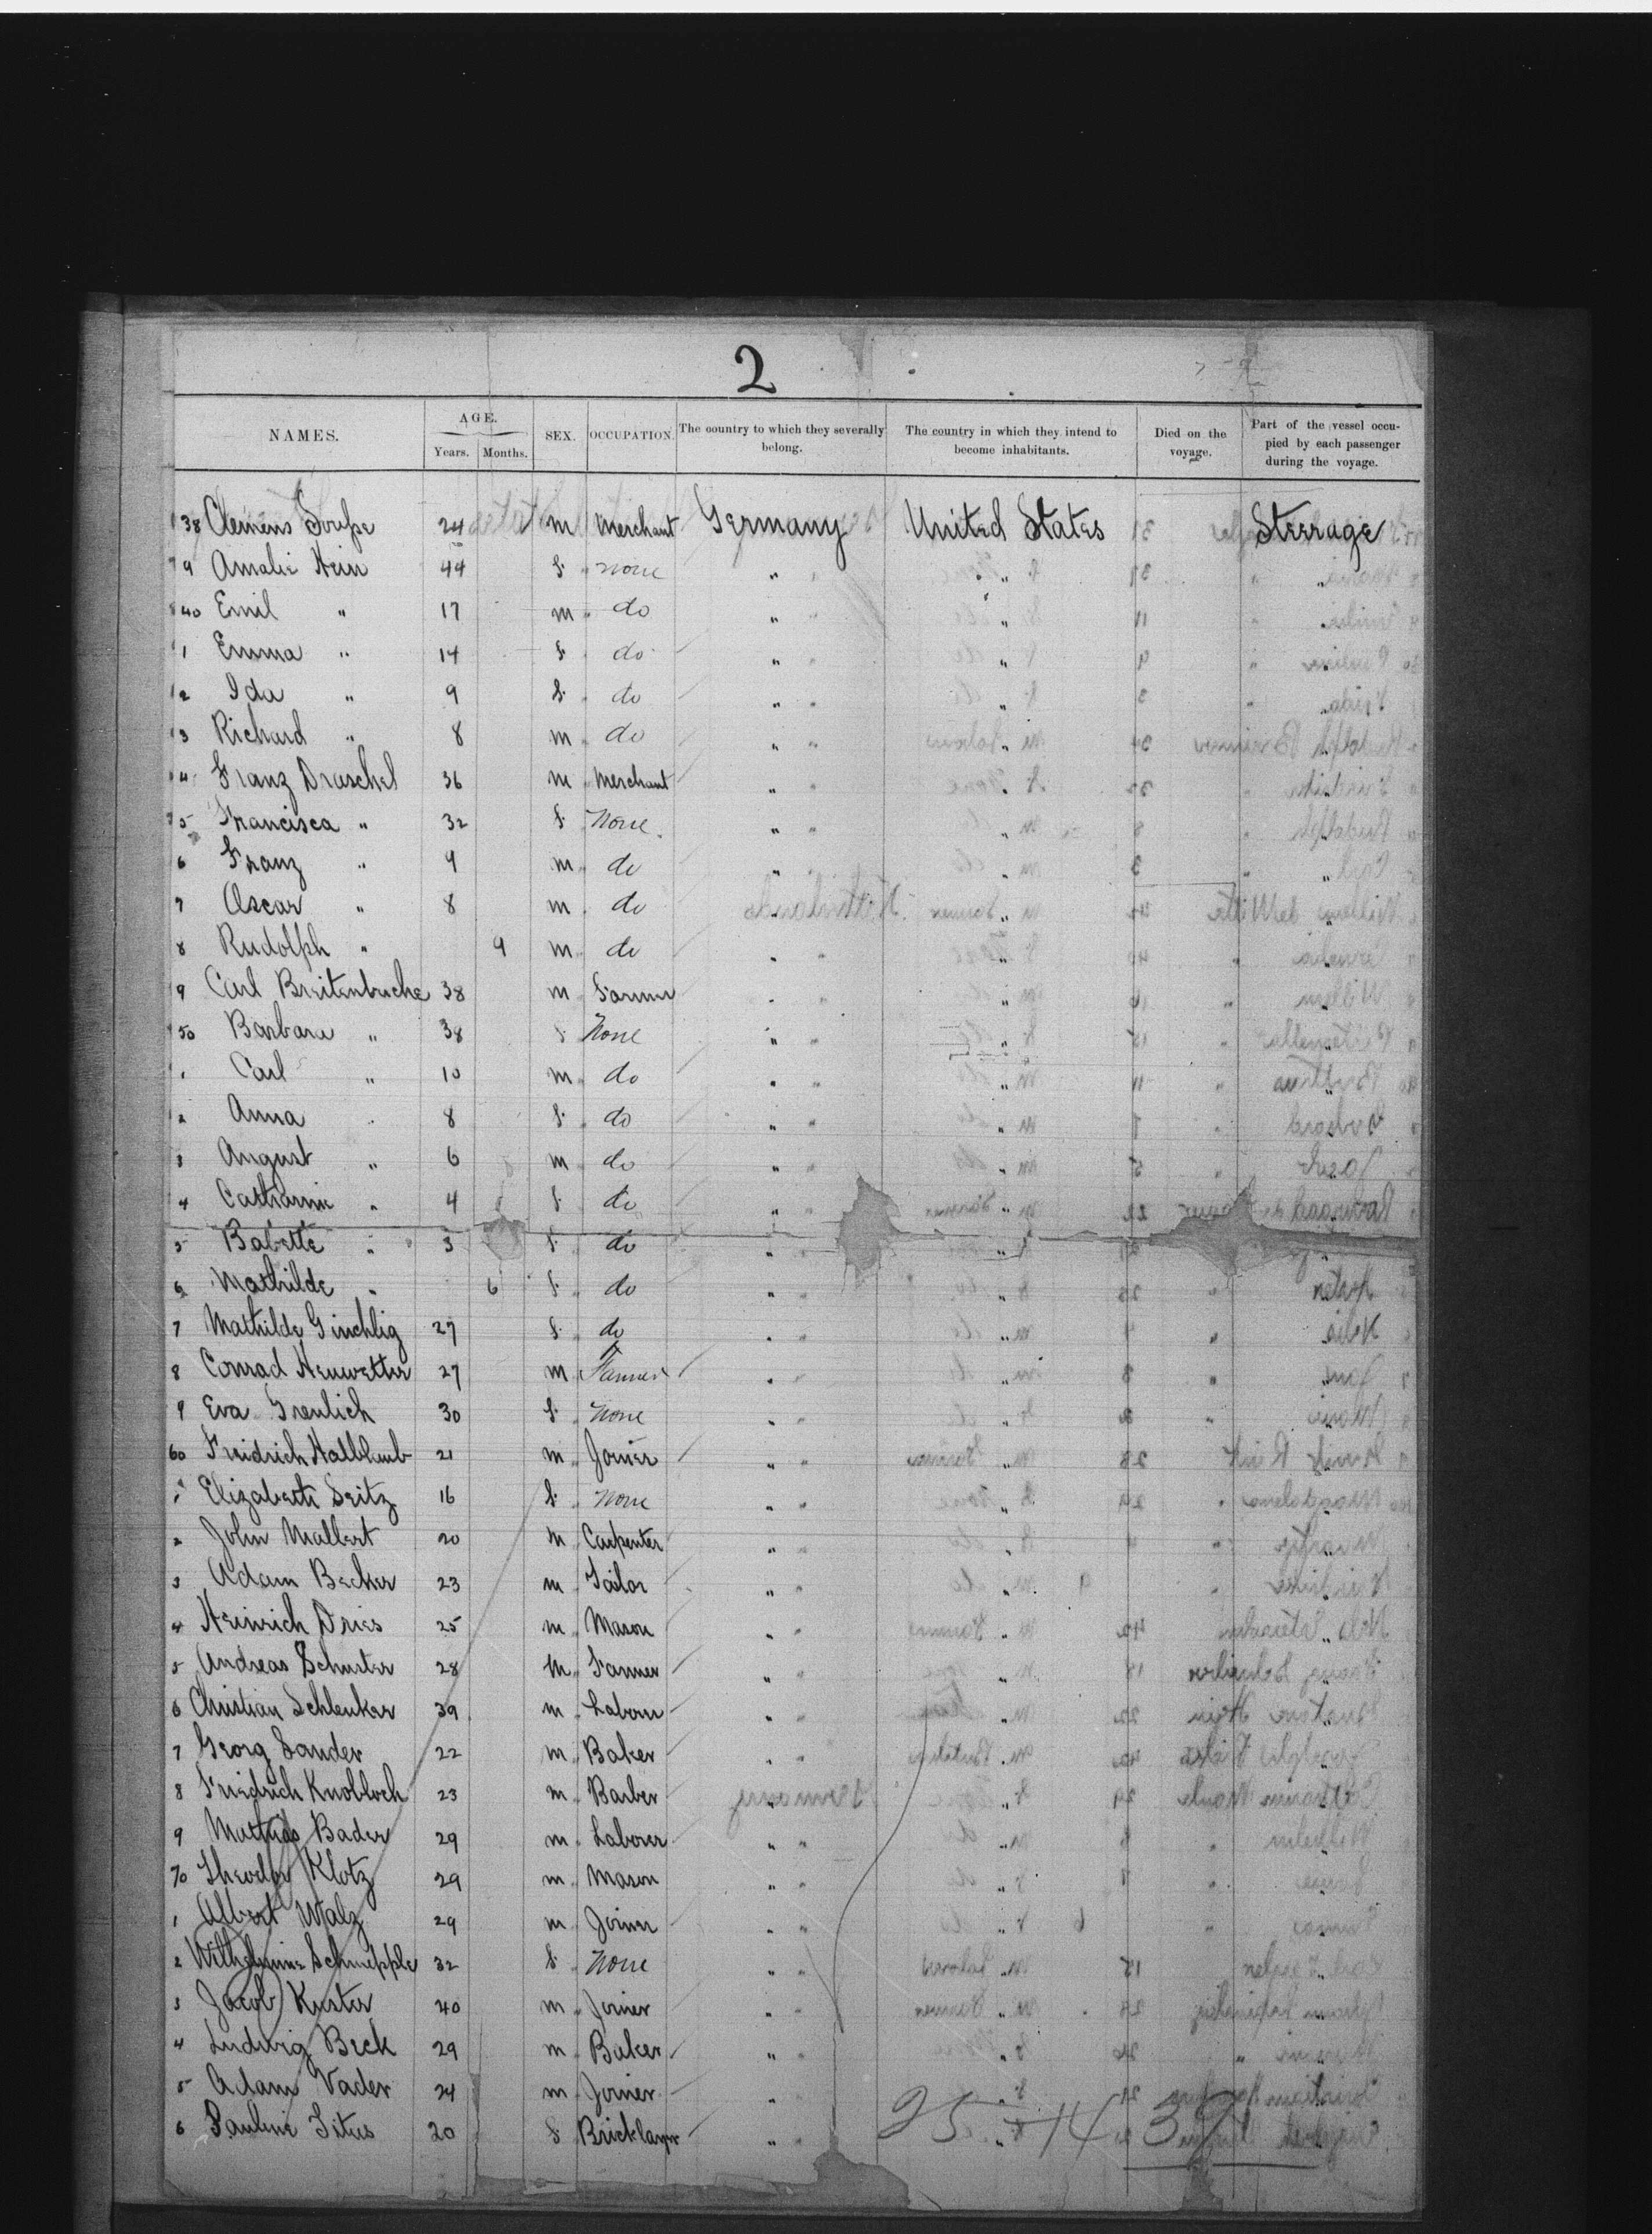 2
NAMES. AGE. Years. Months. SEX. OCCUPATION. The country to which they severally belong. The country in which they intend to become inhabitants. Died on the voyage. Part of the vessel occupied by each passenger during the voyage.
38 Clemens 24 m Merchant Germany United States Steerage
9 Amalie Hein 44 f none " " " "
40 Emil " 17 m do " " " "
1 Emma " 14 f do " " " "
2 Ida " 9 f do " " " "
3 Richard " 8 m do " " " "
4 Franz Draschel 36 m Merchant " " " "
5 Francisca " 32 f None " " " "
6 Franz " 9 m do " " " "
7 Oscar " 8 m do " " " "
8 Rudolph " 9 m do " " " "
9 Carl Breitenbuche 38 m Farmer " " " "
50 Barbara " 38 f None " " " "
1 Carl " 10 m do " " " "
2 Anna " 8 f do " " " "
3 August " 6 m do " " " "
4 Catharine " 4 f do " " " "
5 Babette " 3 f do " " " "
6 Mathilde " 6 f do " " " "
7 Mathilde Ginchlig 27 f do " " " "
8 Conrad Heuwetter 27 m Farmer " " " "
9 Eva Greulich 30 f None " " " "
60 Freidrich Halblaub 21 m Joiner " " " "
1 Elizabeth Seitz 16 f None " " " "
2 John Malbert 20 m Carpenter " " " "
3 Adam Becker 23 m Tailor " " " "
4 Heinrich Dries 25 m Mason " " " "
5 Andreas Schuster 28 m Farmer " " " "
6 Christian Schlenker 39 m Laborer " " " "
7 Georg Sander 22 m Baker " " " "
8 Friedrich Knobloch 23 m Barber " " " "
9 Mathias Bader 29 m Laborer " " " "
70 Theodor Klotz 29 m Mason " " " "
1 Albert Walz 29 m Joiner " " " "
2 Wilhelmine Schnepple 32 f None " " " "
3 Jacob Kuster 40 m Joiner " " " "
4 Ludwig Beck 29 m Baker " " " "
5 Adam Vader 24 m Joiner " " " "
6 Pauline Titus 20 f Bricklayer " " " "
25 14 39